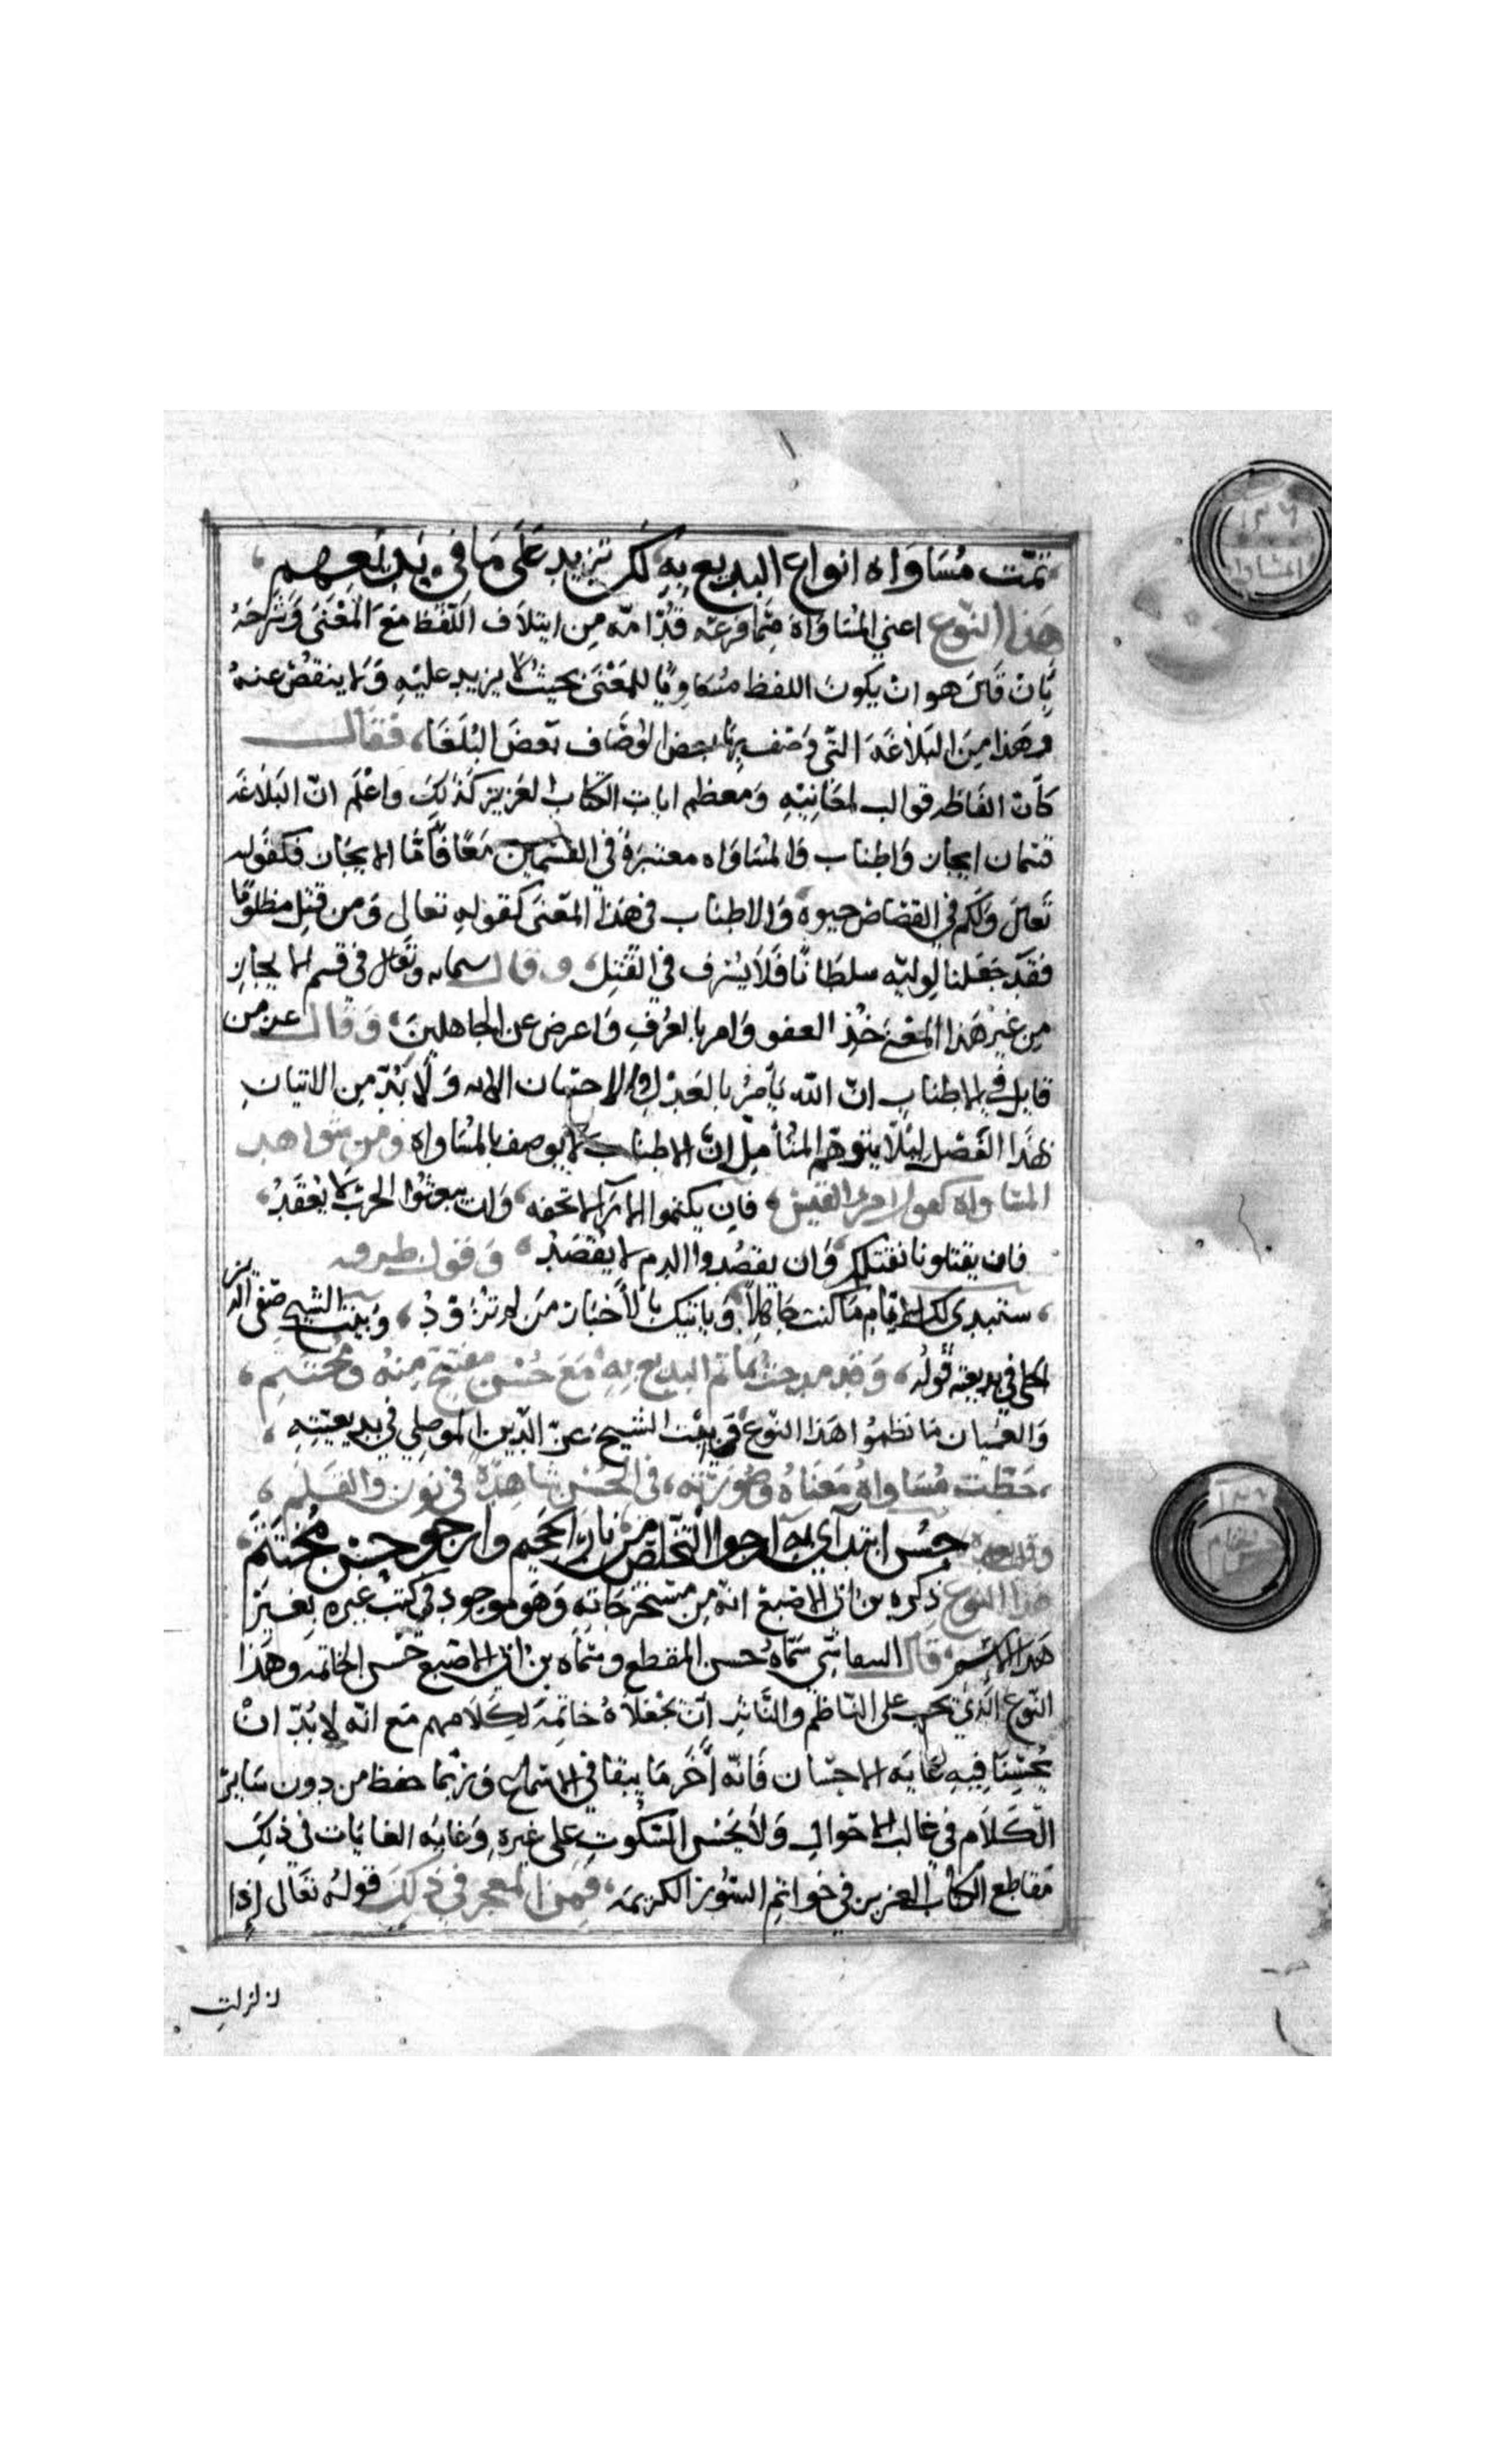 تمّت مُسَاوَاه انواع البديع بِهِ لكن تزيد عَلَى مَا فِي بَدِيعهِم
هَذا النّوع اعني المُسَاوَاة مِمّا فرعَه قُدَامَه مِن ايتلاف اللّفظ مَعَ المَعْنَى وَشَرَحَهُ
بِان قَالَ هو ان يكونَ اللفظ مُسَاويًا لِلمَعْنَى بحيث لا يزيد عليْهِ وَلا ينقُصُ عنهُ
وهَذا مِنَ البَلاغَه التّي وَصَف بِهَا بعض الوصّاف بَعْضَ البُلَغَا، فقال
كانّ الفَاظه قوالب لمعَانِيْهِ وَمعظم ايات الكتاب العَزيز كذلِكَ وَاعْلم انّ البَلاغَه
قسمان ايجاز وَاطناب وَالمسَاوَاه معتبرَة في القسْمين مَعًا فامّا الايجاز فكقوله
تَعالى وَلكم في القصَاص حيوة وَالاطناب في هَذا المَعْنى كقولهِ تعالى وَمن قُتِل مظلومًا
فقد جَعَلنا لِوليّه سلطانًا فَلا يُسْرف في القَتْلِ، وقال سبحانه وتعالى في قسم الايجاز
مِن غيْر هَذا المعْنى خُذ العفو وَامر بالعُرفِ وَاعرض عن الجاهلينَ، وَقَال عز من
قايل في الاطناب انّ اللّه يَامُرُ بالعَدْل والاحسَان الايه وَلا بُدّ مِن الاتيانِ
بهَذا الفَصْل ليَلّا يتوَهّم المُتأمِّل انّ الاطناب لا يوصف بالمسَاواه ومن شواهد
المسَاواه كقول امرئ القيس، فان يكتموا الدّآ لا نخفه، وَان يبعثُوا الحربَ لا يقعُد،
فان يقتلونا نقتلكم وَان يقصُدوا الدم لا يقصُد، وَقول طرفه
، ستبدي لك الايّام مَا كنت جَاهِلاً، وَياتيك بالأخبَار مَن لم تُزَوّدِ، وَبيت الشيخ صَفي الدين
الحلي في بديعيته قولهُ، وَقد مدحتُ بمَا تم البديع بِهِ، مَعَ حُسْن مفتتح مِنهُ ومُختتَمِ،
وَالعميان مَا نظموا هَذا النّوع، وَبيْت الشيخ عزّ الدّين الموصلي في بديعيّتِهِ،
، حَظّت مُسَاواةُ مَعناهُ وصُورَته، في الحُسْن شاهدَةٌ في نون والقلمِ،
وقلت حسن ابتدآي به ارجو التّخلّص من نار الجحيم وارجو حسْن مُختَتَمي
هذا النوع ذكره بن ابي الاصبع انّه مِن مستخرجَاتهِ وَهَو موجود في كتب غيره بغير
هَذا الاسْم، قال التيفاشي سَمّاهُ حُسن المقطع وسمّاه بن ابي الاصبع حُسن الخاتمه وهَذا
النّوع الّذي يجب على النّاظم والنّاثر أن يجْعَلاهُ خاتِمَة لكِلامهم مَع انّه لا بُدّ انْ
يُحْسِنَا فيهِ غَايَة الاحسَان فَانّه آخر مَا يبقا في الاسْماع وَربّما حفظ من دون سَاير
الكَلام في غالب الاحوالِ وَلا يحْسُن السّكوت على غيره، وغايه الغايات في ذلكَ
مَقاطع الكتاب العزيز في خواتم السّور الكريمَه، فمِن المعجز في ذلِكَ قولهُ تَعَالى إذا
زلزلت
١٣٦
المساواه
١٣٧
حسن الختام